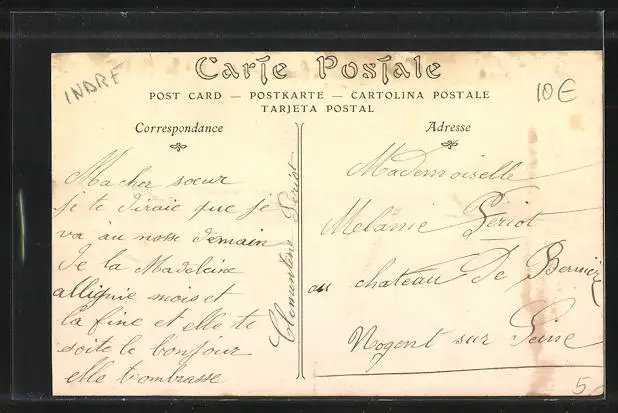 INDRE
10€
Carte Postale
POST CARD — POSTKARTE — CARTOLINA POSTALE
TARJETA POSTAL
Correspondance
Ma cher sœur
je te diraie que je
va au nosse demain
de la Madeleine
allignie mois et
la fine et elle te
soite le bonjour
elle t'ombrasse
Clementine Periot
Adresse
Mademoiselle
Melanie Periot
au chateau De
Nogent sur Seine
5